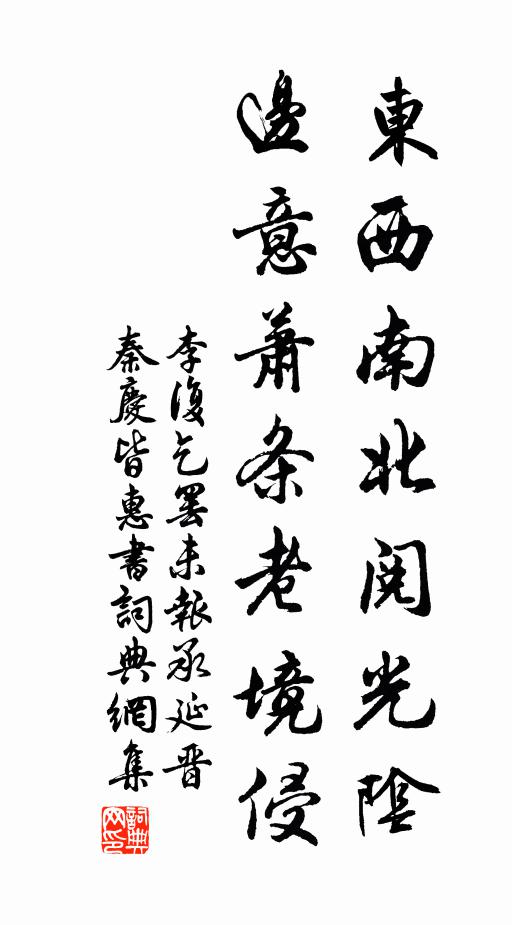 東西南北閱光陰
邊意蕭条老境侵
李復乞罷未報承延晋
秦慶皆惠書詞典網集
詞典网印